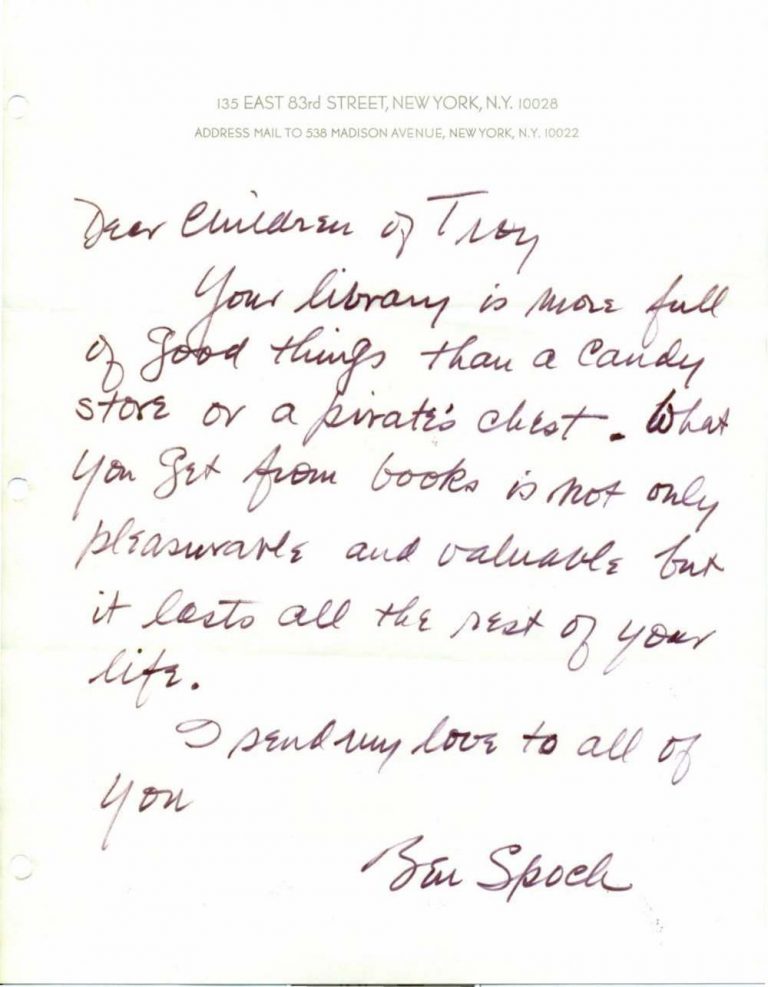 135 EAST 83rd STREET, NEW YORK, N.Y. 10028
ADDRESS MAIL TO 538 MADISON AVENUE, NEW YORK, N.Y. 10022
Dear Children of Troy
Your library is more full
of good things than a candy
store or a pirate's chest. What
you get from books is not only
pleasurable and valuable but
it lasts all the rest of your
life.
I send my love to all of
you
Ben Spock